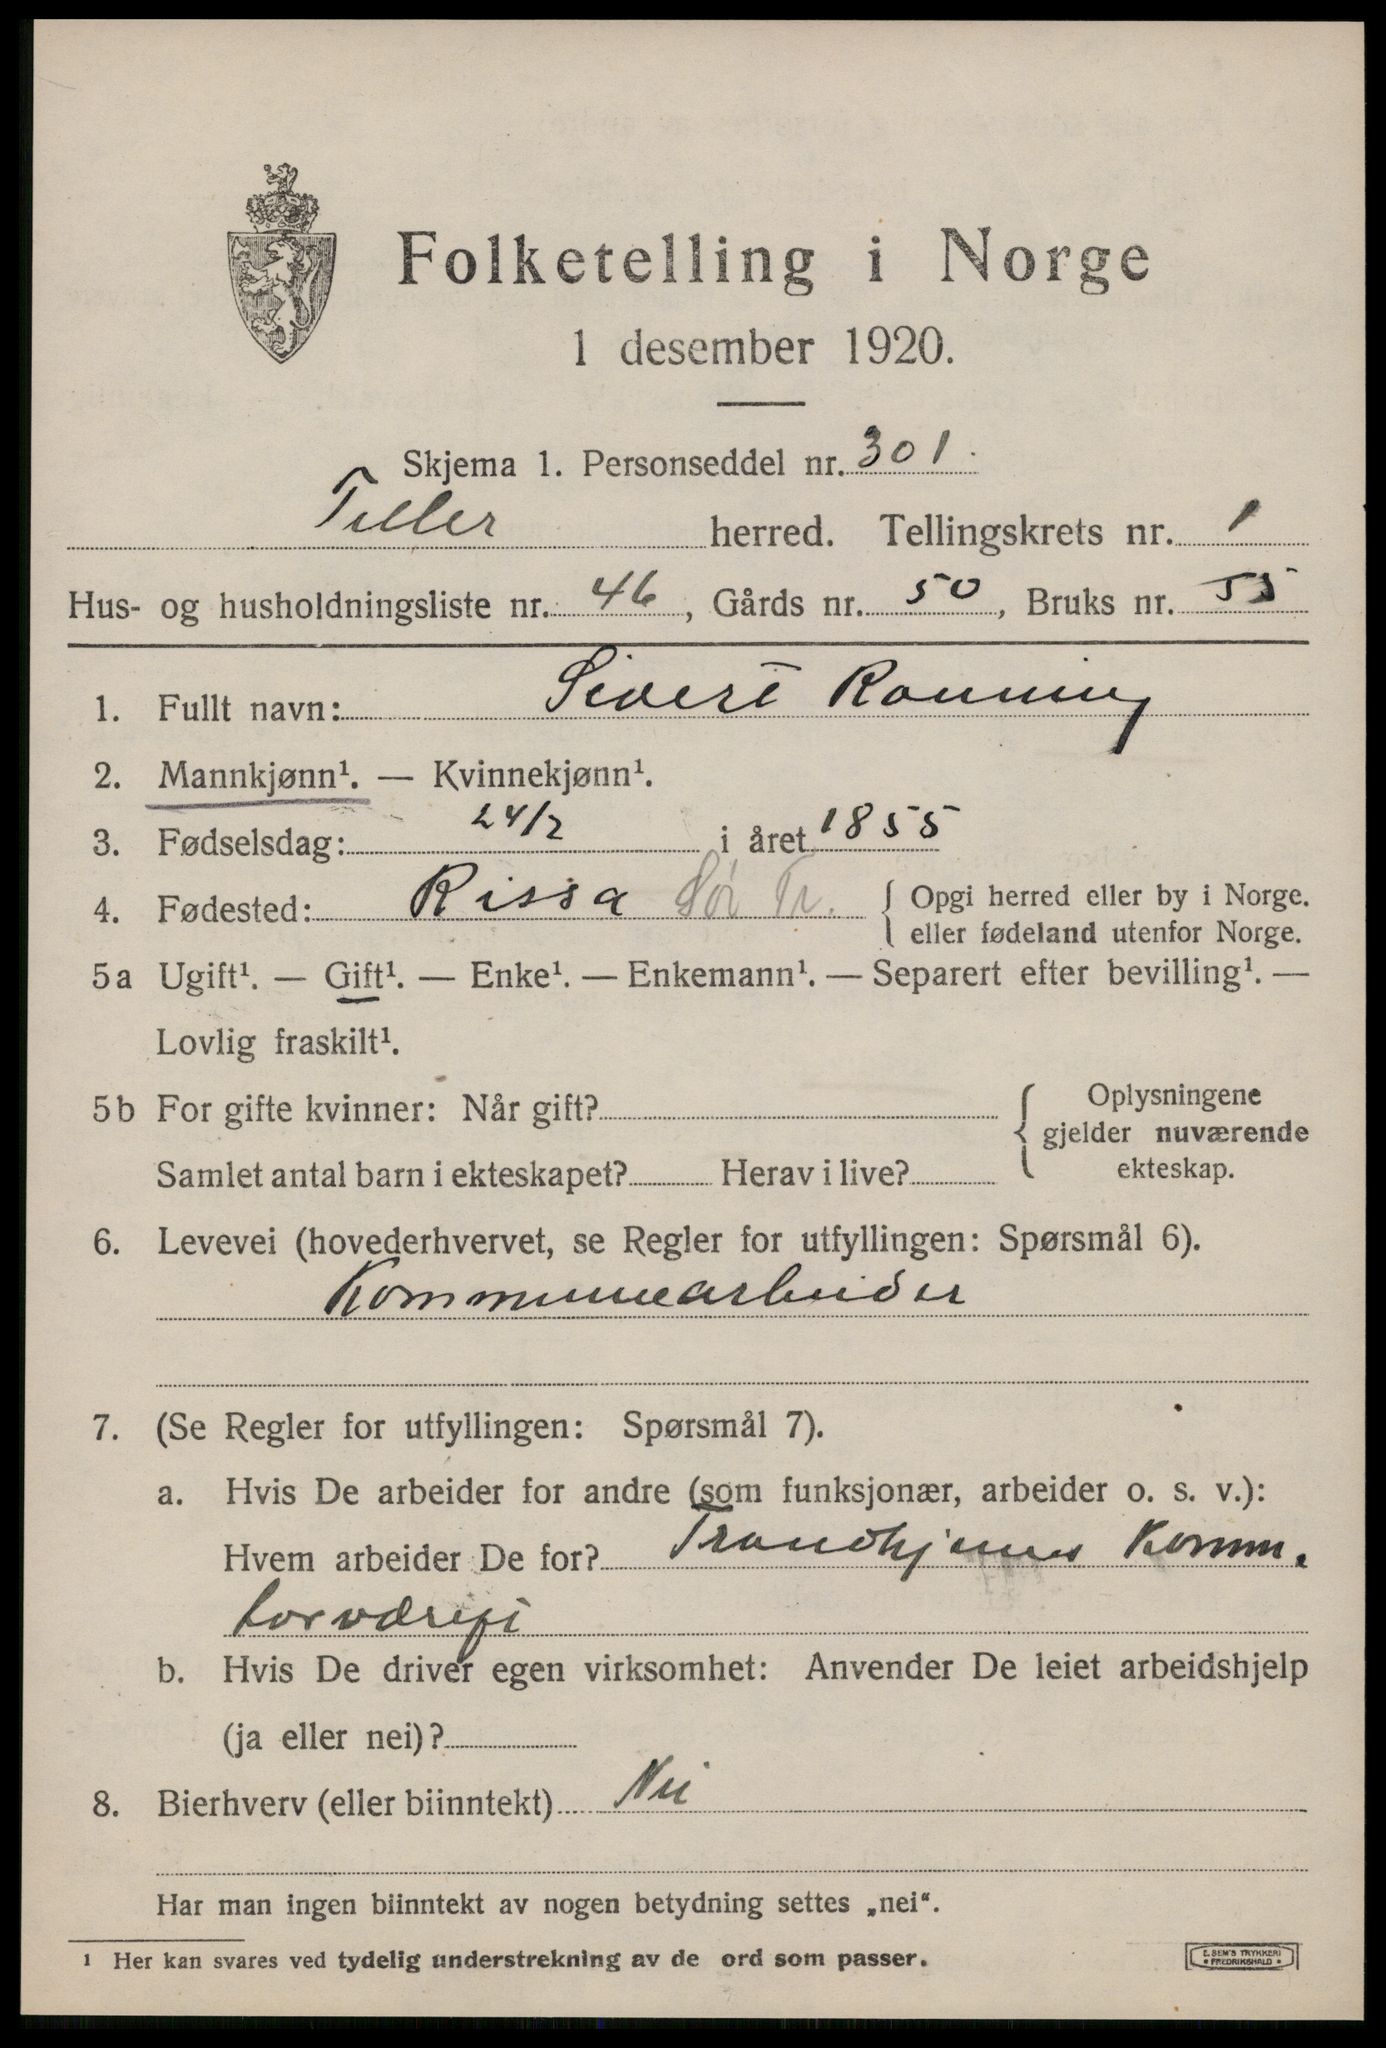 Folketelling i Norge
1 desember 1920.
Skjema 1. Personseddel nr. 301.
Tiller herred. Tellingskrets nr. 1
Hus- og husholdningsliste nr. 46, Gårds nr. 50, Bruks nr. 55
1. Fullt navn: Sivert Rønning
2. Mannkjønn¹. — Kvinnekjønn¹.
3. Fødselsdag: 24/2 i året 1855
4. Fødested: Rissa Sör Tr. { Opgi herred eller by i Norge.
eller fødeland utenfor Norge.
5a Ugift¹. — Gift¹. — Enke¹. — Enkemann¹. — Separert efter bevilling¹. —
Lovlig fraskilt¹.
5b For gifte kvinner: Når gift?
Samlet antal barn i ekteskapet? Herav i live?
{ Oplysningene
gjelder nuværende
ekteskap.
6. Levevei (hovederhvervet, se Regler for utfyllingen: Spørsmål 6).
Kommunearbeider
7. (Se Regler for utfyllingen: Spørsmål 7).
a. Hvis De arbeider for andre (som funksjonær, arbeider o. s. v.):
Hvem arbeider De for? Trondhjems Komm.
b. Hvis De driver egen virksomhet: Anvender De leiet arbeidshjelp
(ja eller nei)?
8. Bierhverv (eller biinntekt) Nei
Har man ingen biinntekt av nogen betydning settes „nei“.
1 Her kan svares ved tydelig understrekning av de ord som passer.
E. SEM'S TRYKKERI
• FREDRIKSHALD •